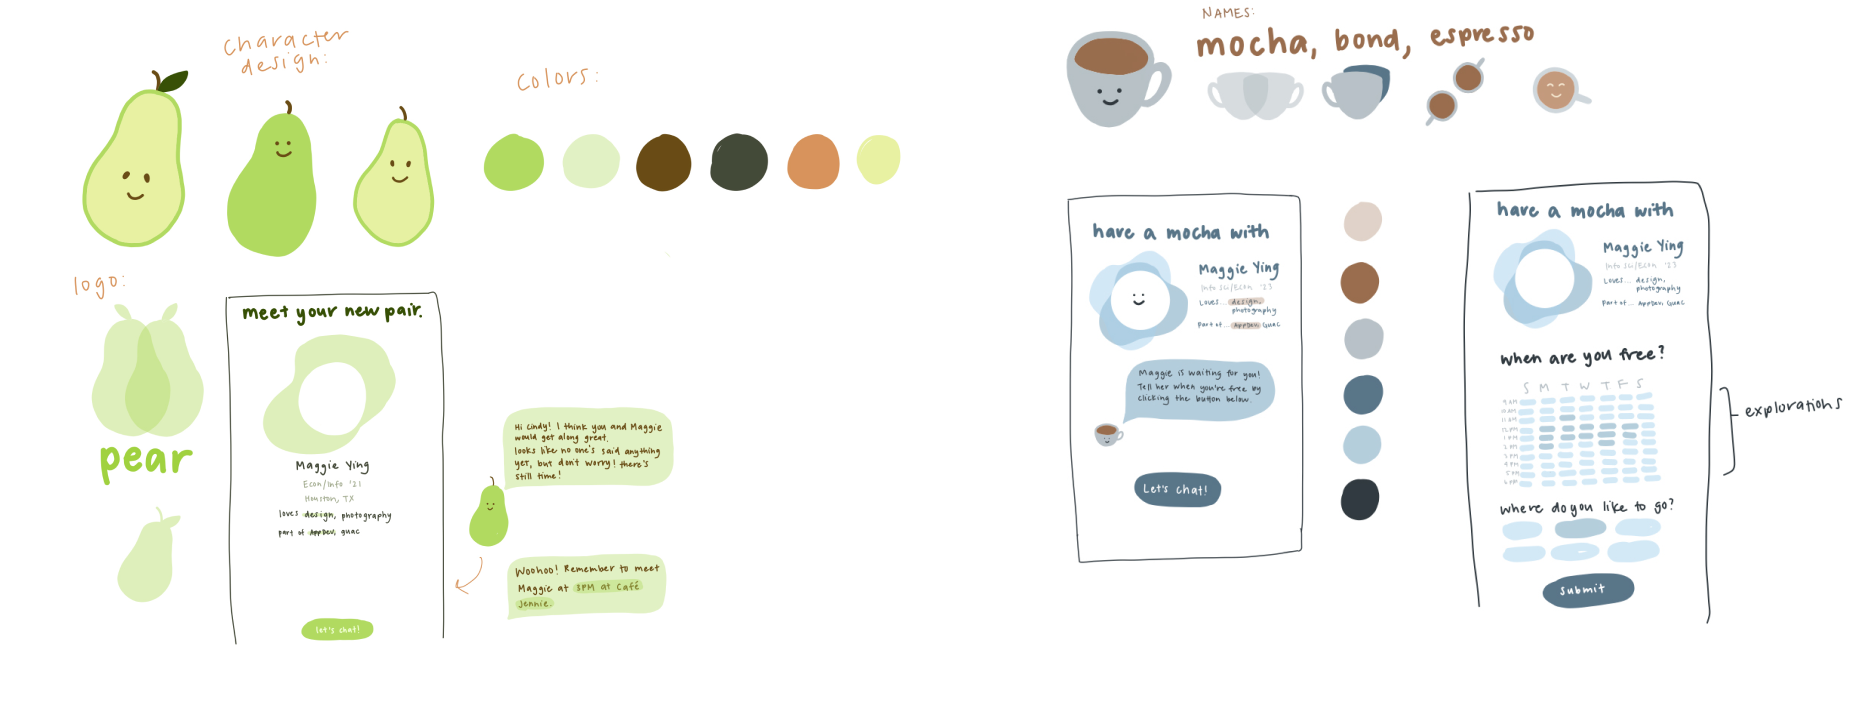 Character
design:
Colors:
logo:
pear
meet your new pair.
Maggie Ying
Econ/Info '21
Houston, TX
loves design, photography
part of AppDev, guac
let's chat!
Hi Cindy! I think you and Maggie
would get along great.
looks like no one's said anything
yet, but don't worry! there's
still time!
Woohoo! Remember to meet
Maggie at 3PM at Café
Jennie.
NAMES:
mocha, bond, espresso
have a mocha with
Maggie Ying
Info Sci/Econ '23
Loves... design,
photography
Part of... AppDev Guac
Maggie is waiting for you!
Tell her when you're free by
clicking the button below.
Let's chat!
have a mocha with
Maggie Ying
Info Sci/Econ '23
Loves... design,
photography
Part of... AppDev, Guac
when are you free?
S M T W T F S
9 AM
10 AM
11 AM
12 PM
1 PM
2 PM
3 PM
4 PM
5 PM
6 PM
where do you like to go?
Submit
explorations